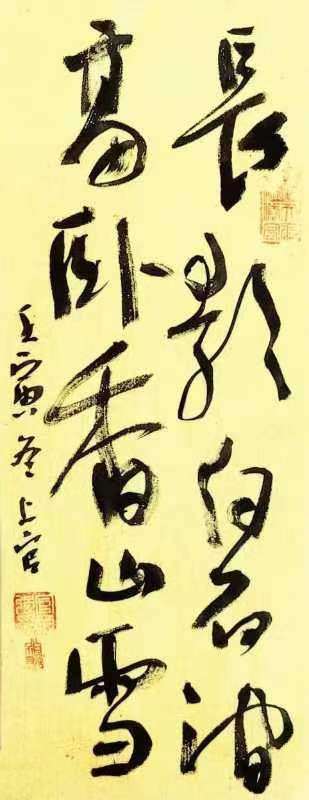 長歌白石澗
高卧香山雪
壬寅冬上官